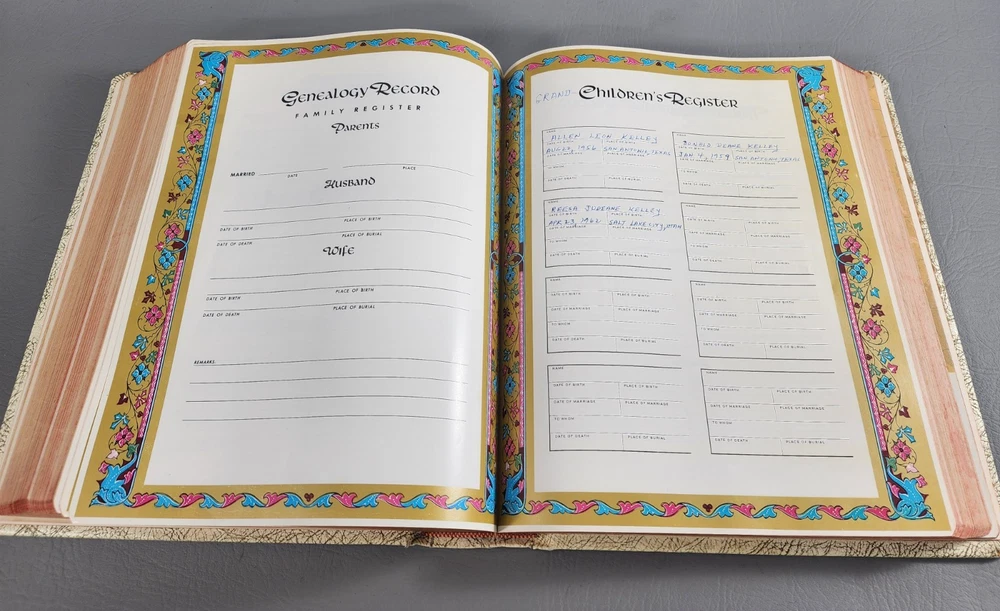 Genealogy Record
FAMILY REGISTER
Parents
MARRIED
DATE PLACE
Husband
DATE OF BIRTH PLACE OF BIRTH
DATE OF DEATH PLACE OF BURIAL
Wife
DATE OF BIRTH PLACE OF BIRTH
DATE OF DEATH PLACE OF BURIAL
REMARKS:
GRAND- Children's Register
NAME
ALLEN LEON KELLEY
DATE OF BIRTH PLACE OF BIRTH
AUG 1956 SAN ANTONIO, TEXAS
DATE OF MARRIAGE PLACE OF MARRIAGE
TO WHOM
DATE OF DEATH PLACE OF BURIAL
NAME
DONALD DEANE KELLEY
DATE OF BIRTH PLACE OF BIRTH
JAN 4, 1959 SAN ANTONIO, TEXAS
DATE OF MARRIAGE PLACE OF MARRIAGE
TO WHOM
DATE OF DEATH PLACE OF BURIAL
NAME
JUDEANE KELLEY
DATE OF BIRTH PLACE OF BIRTH
APR 23, 1962 SALT LAKE CITY, UTAH
DATE OF MARRIAGE PLACE OF MARRIAGE
TO WHOM
DATE OF DEATH PLACE OF BURIAL
NAME
DATE OF BIRTH PLACE OF BIRTH
DATE OF MARRIAGE PLACE OF MARRIAGE
TO WHOM
DATE OF DEATH PLACE OF BURIAL
NAME
DATE OF BIRTH PLACE OF BIRTH
DATE OF MARRIAGE PLACE OF MARRIAGE
TO WHOM
DATE OF DEATH PLACE OF BURIAL
NAME
DATE OF BIRTH PLACE OF BIRTH
DATE OF MARRIAGE PLACE OF MARRIAGE
TO WHOM
DATE OF DEATH PLACE OF BURIAL
NAME
DATE OF BIRTH PLACE OF BIRTH
DATE OF MARRIAGE PLACE OF MARRIAGE
TO WHOM
DATE OF DEATH PLACE OF BURIAL
NAME
DATE OF BIRTH PLACE OF BIRTH
DATE OF MARRIAGE PLACE OF MARRIAGE
TO WHOM
DATE OF DEATH PLACE OF BURIAL